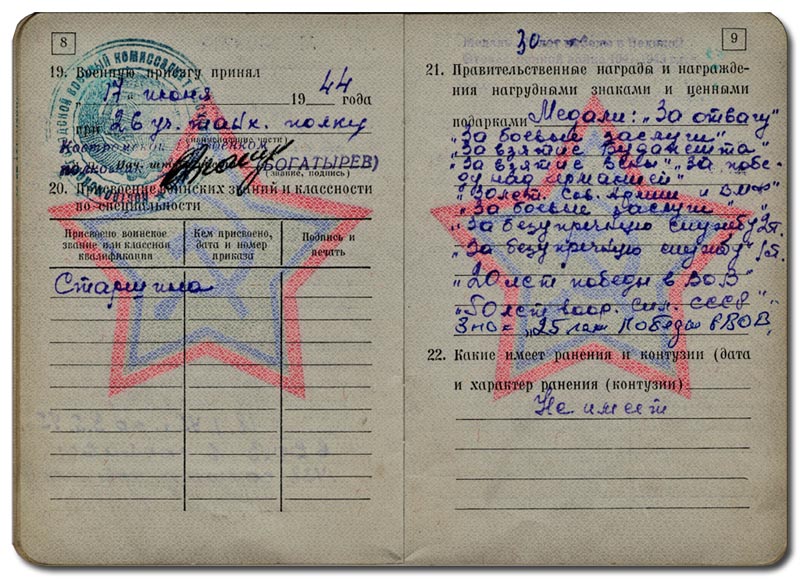 8
19. Военную присягу принял
„17“ июня 1944 года
при 26 уч. танк. полку
(наименование части)
(БОГАТЫРЕВ)
(звание, подпись)
20. Присвоение воинских званий и классности
по специальности
Присвоено воинское звание или классная квалификация
Кем присвоено, дата и номер приказа
Подпись и печать
Старшина
30
9
21. Правительственные награды и награжде-
ния нагрудными знаками и ценными
подарками Медали: „За отвагу“
„За боевые заслуги“
„За взятие Будапешта“
„За взятие Вены“ „За побе-
ду над Германией“
„30 лет Сов. Армии и ВМФ“
„За боевые заслуги“
„За безупречную службу“ 2 ст.
„За безупречную службу“ 1 ст.
„20 лет победы в ВОВ“
„50 лет воор. сил. СССР“
Знак „25 лет Победы в ВОВ“
22. Какие имеет ранения и контузии (дата
и характер ранения (контузии)
Не имеет